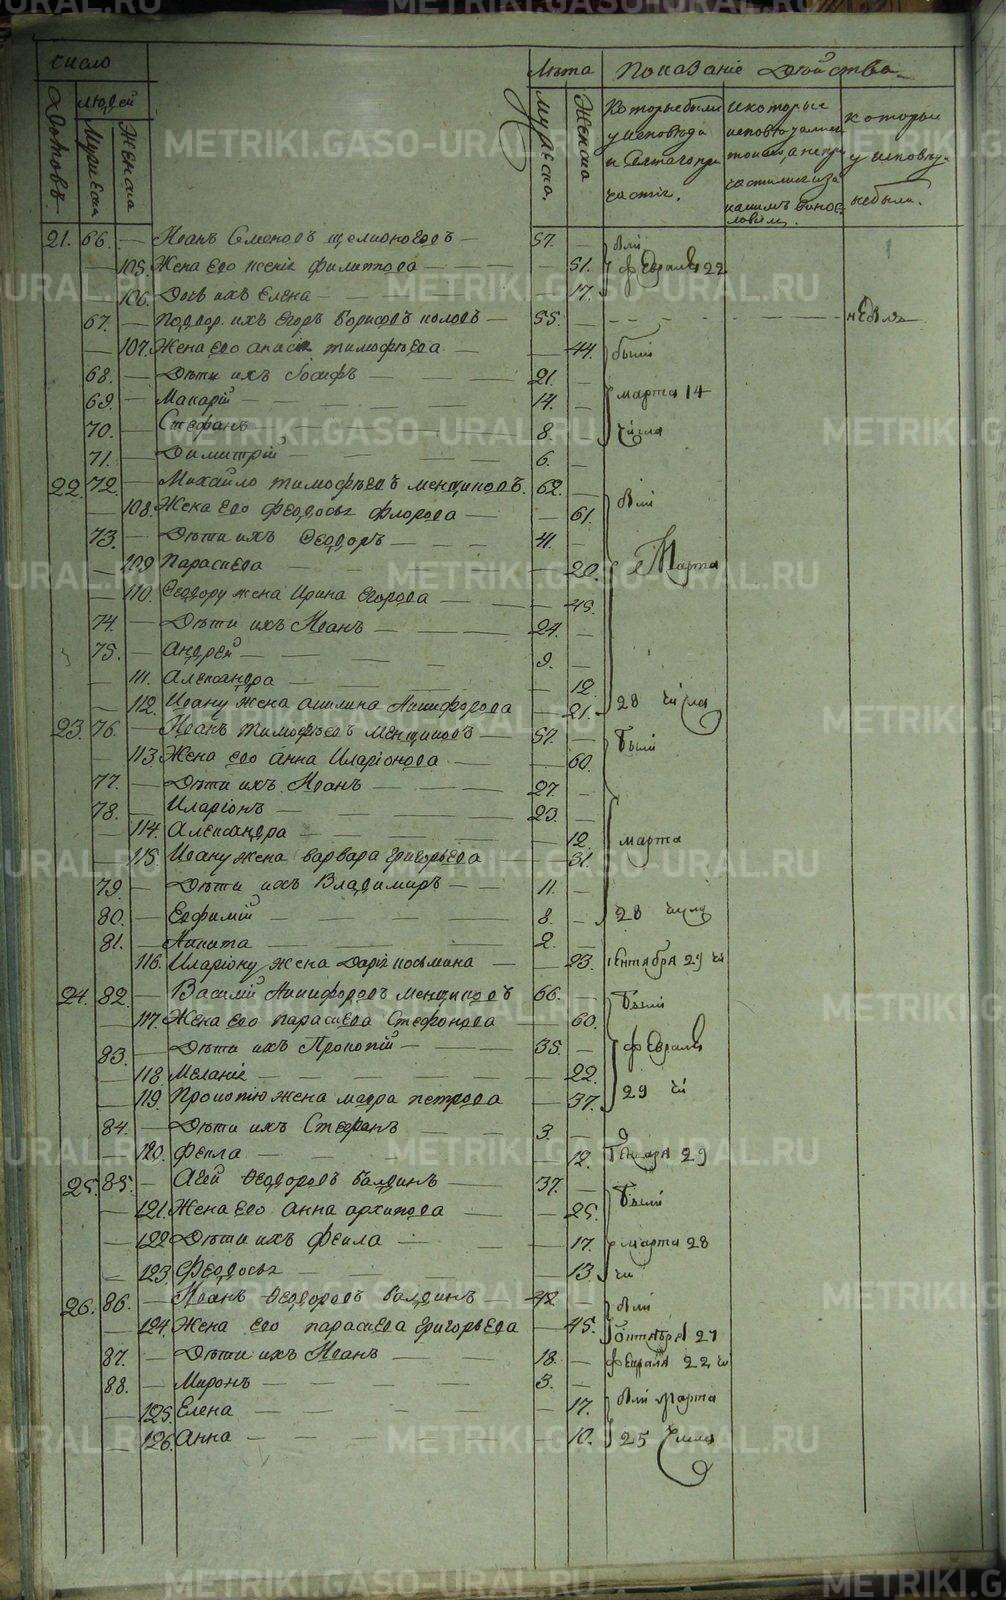 число
Лѣта Показаніе Дѣйства
Дворовъ
людей
Мужеска
Женска
Мужеска.
Женска
Которые были у исповѣди и Святаго причастія.
и которые исповѣдались токмо, а не причастились и за какимъ винословіем.
которые у исповѣди небыли.
21. 66. — Иванъ Семеновъ щелконоговъ — 57. — Были
— 105. Жена Его ксенія филиппова — — 51. февраля 22
106. Дочь ихъ Елена — — 17.
67. — Подвор. ихъ Егоръ Борисовъ поповъ — 55. — небылъ
— 107. Жена Его анисья тимофѣева — — 44. были
68. — Дѣти ихъ Іосифъ — 21. —
69. — Макарій — 14. — марта 14
70. — Стефанъ — 8. — числа
71. — Димитрій — 6. —
22. 72. — Михайло тимофѣевъ менщиковъ. 62. — Были
— 108. Жена Его феодосья флорова — — 61.
73. — Дѣти ихъ Ѳеодоръ — 41. —
— 109. Параскева — — 20. Марта
— 110. Ѳеодору жена Ирина Егорова — — 45.
74. — Дѣти ихъ Иванъ — 24. —
75. — андрей — 9. —
— 111. Александра — — 12.
— 112. Ивану жена акилина Никифорова — 21. 28 числа
23. 76. — Иванъ тимофѣевъ Менщиковъ — 57. — были
— 113. Жена его анна Иларіонова — — 60.
77. — Дѣти ихъ Иванъ — 27. —
78. — Иларіонъ — 23. —
— 114. Александра — — 12. марта
— 115. Ивану жена варвара григорьева — — 31.
79. — Дѣти ихъ Владимиръ — 11. —
80. — Евфимій — 8. — 28 числа
81. — Никита — 2. —
116. Иларіону жена Дарія козьмина — — 23. сентября 29 чи
24. 82. — Василій Никифоровъ Менщиковъ 66. — были
— 117. Жена Его параскева Стефанова — — 60.
83. — Дѣти ихъ Прокопій — 35. — февраля
— 118. Меланія — — 22.
— 119. Прокопію жена мавра петрова — 37. 29 чи
84. — Дѣти ихъ Стефанъ — 3. —
— 120. фекла — — 12. генваря 29
25. 85. — Агей Ѳеодоровъ Балдинъ — 37. — были
— 121. Жена Его Анна архипова — — 25.
— 122. Дѣти ихъ фекла — — 17. марта 28
— 123. Феодосья — — 13. чи
26. 86. — Иванъ Ѳеодоровъ Балдинъ — 42 — были
— 124. Жена его параскева григорьева — 45. октября 27
87. — Дѣти ихъ Иванъ — 18. — февраля 22 чи
88. — Миронъ — 3. —
— 125. Елена — — 17. были марта
— 126. Анна — — 10. 25 числа
METRIKI.GASO-URAL.RU